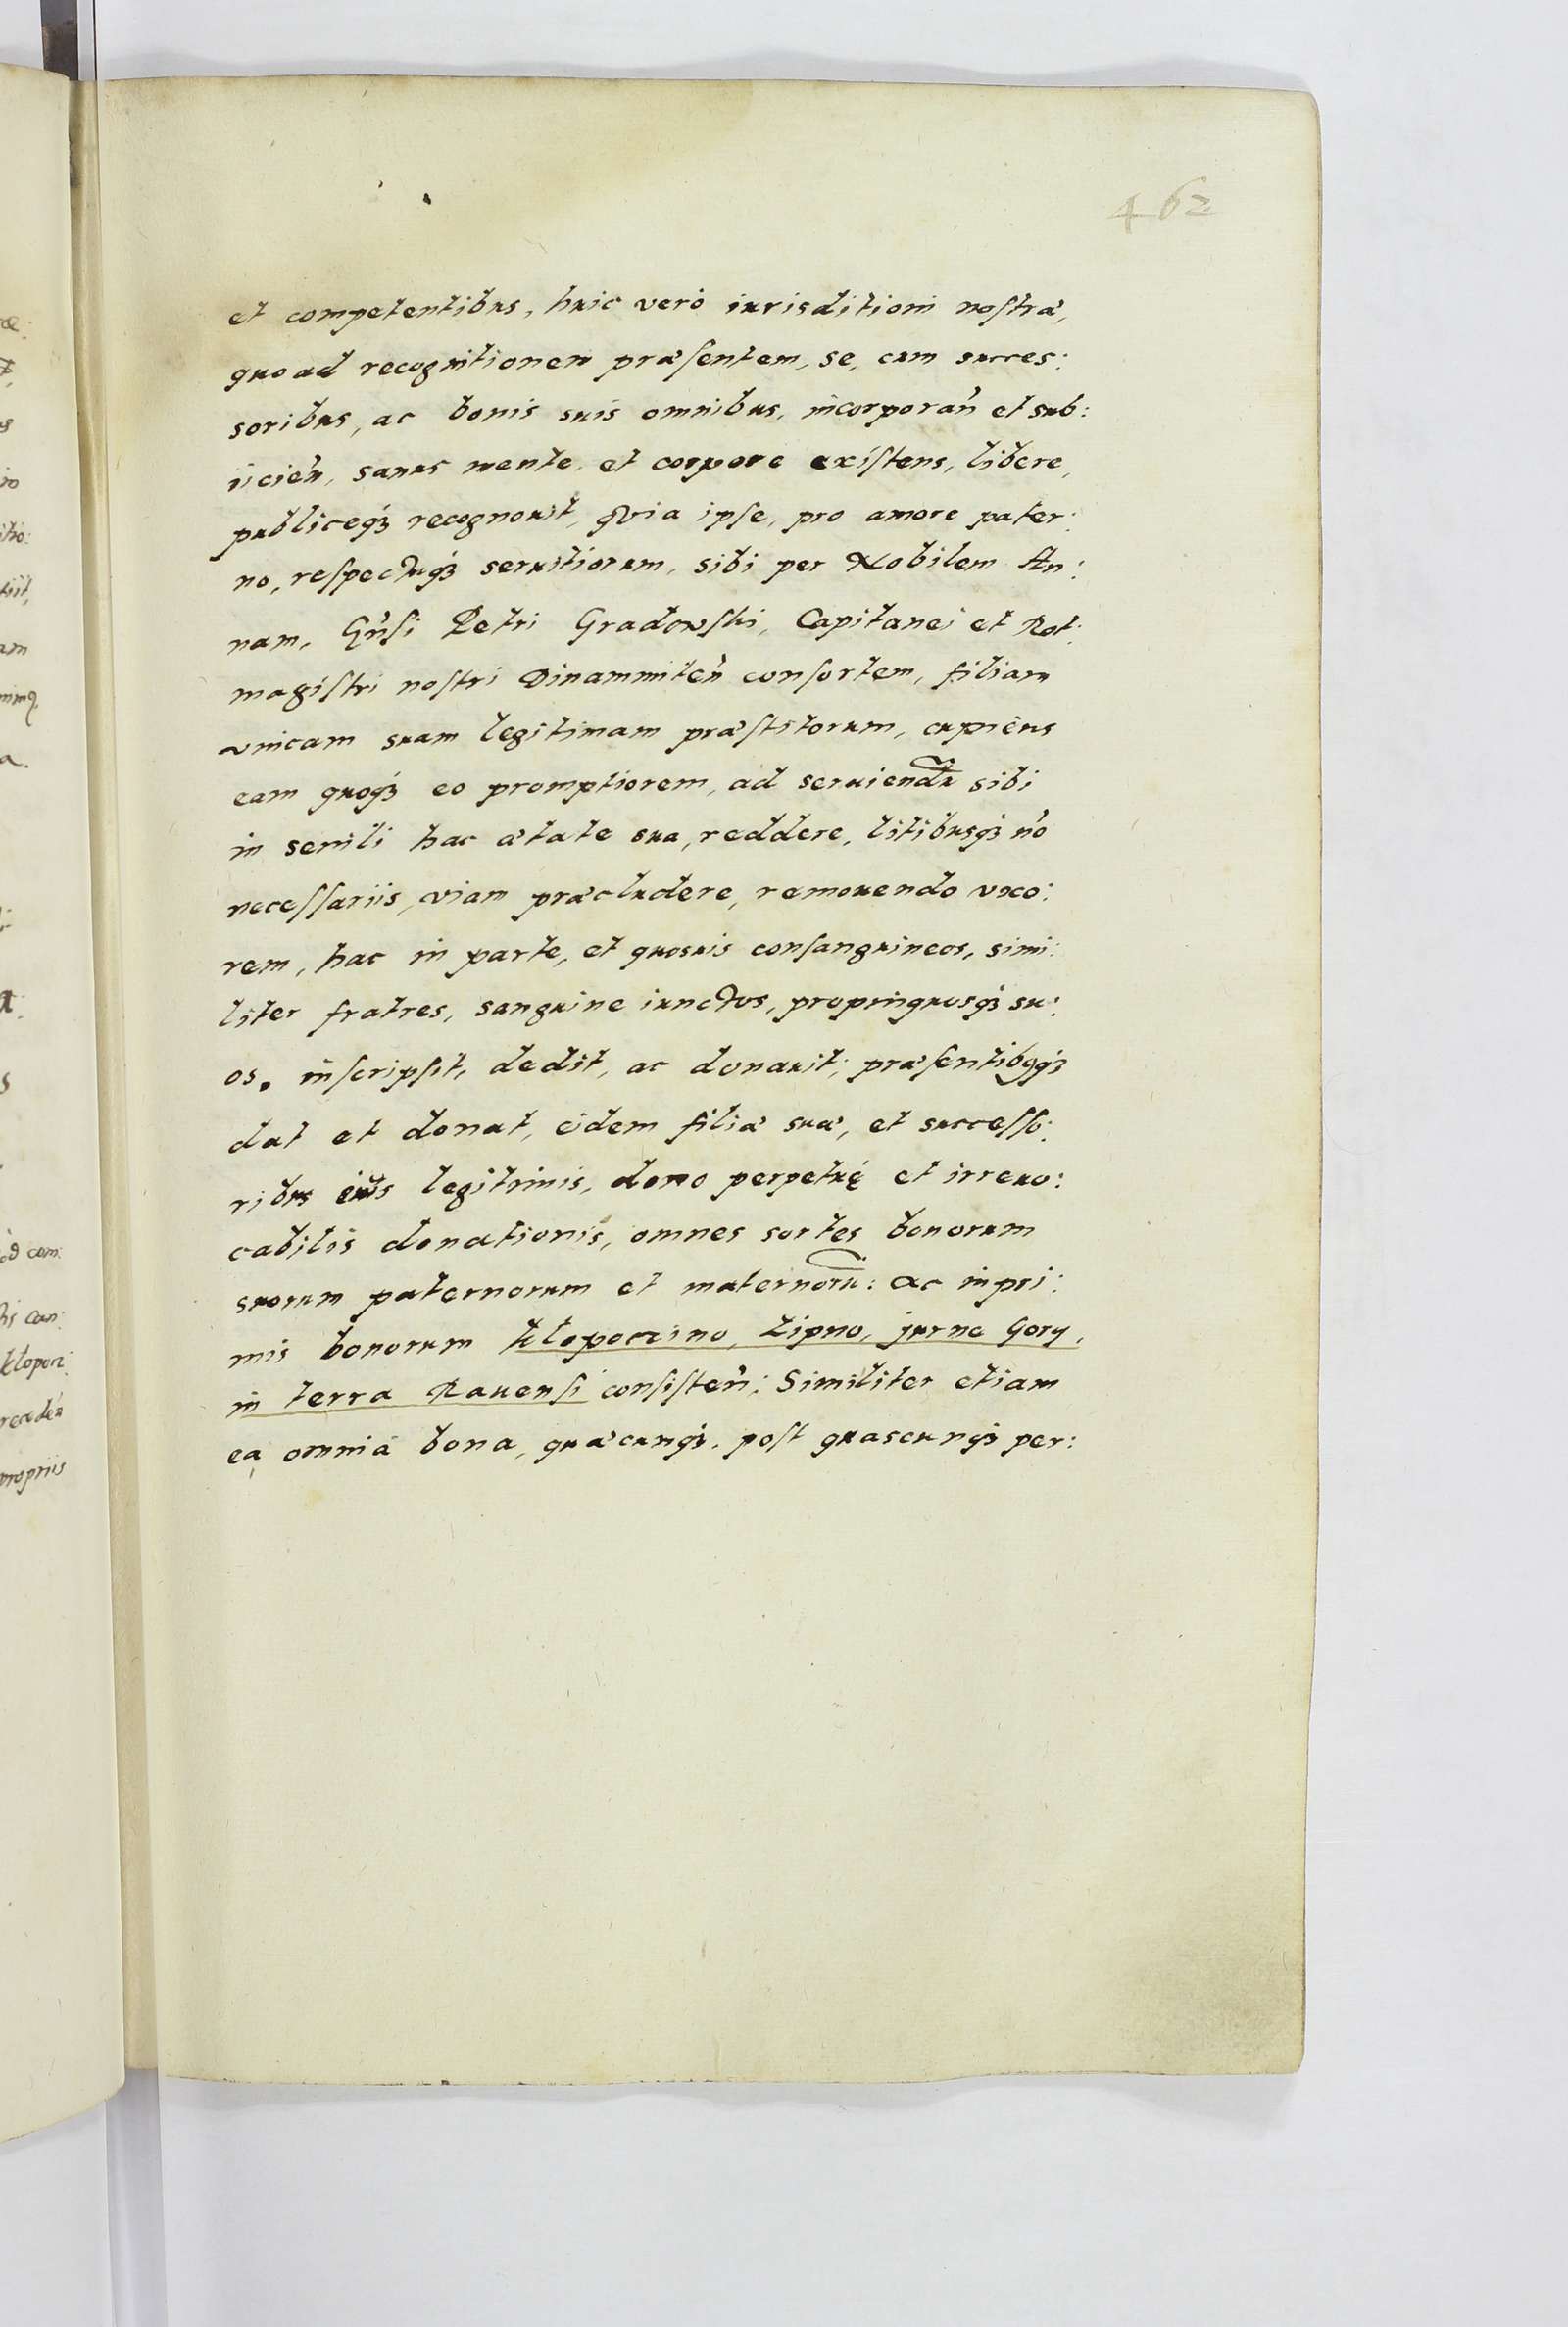 462
et competentibus, huic verò iurisditioni nostræ,
quo ad recognitionem præsentem, se, cum succes:
soribus, ac bonis suis omnibus, incorporań et sub:
iicień, sanus mente, et corpore existens, libere,
publiceq́ꝫ recognouit, qvia ipse, pro amore pater:
no, respectuq́ꝫ seruitiorum, sibi per Nobilem An:
nam, Gńsi Petri Gradowski, Capitanei et Rot:
magistri nostri Dinammiteń consortem, filiam
vnicam suam legitimam præstitorum, cupiens
eam quoq́ꝫ eo promptiorem, ad seruiendũ sibi
in senili hac ætate sua, reddere, litibusq́ꝫ nȯ
necessariis, viam præcludere, remouendo vxo:
rem, hac in parte, et quosuis consanguineos, simi:
liter fratres, sanguine iunctos, propinquosq́ꝫ su:
os, inscripsit, dedit, ac donauit; præsentibꝯq́ꝫ
dat et donat, eidem filiæ suæ, et successo:
ribus eius legitimis, dono perpetuę et irreuo:
cabilis donationis, omnes sortes bonorum
suorum paternorum et maternorũ: ac inpri:
mis bonorum Klopoczino, Lipno, jurne Gory,
in terra Rauensi consisteń: Similiter etiam
ea omnia bona, quæcunq́ꝫ, post quascunq́ꝫ per: